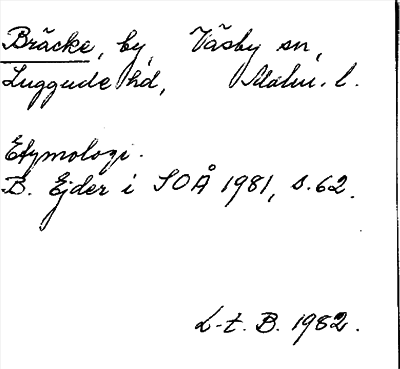 Bräcke, by, Väsby sn,
Luggude hd, Malm. l.
Etymologi.
B. Ejder i SOÅ 1981, s. 62.
L-t. B. 1982.